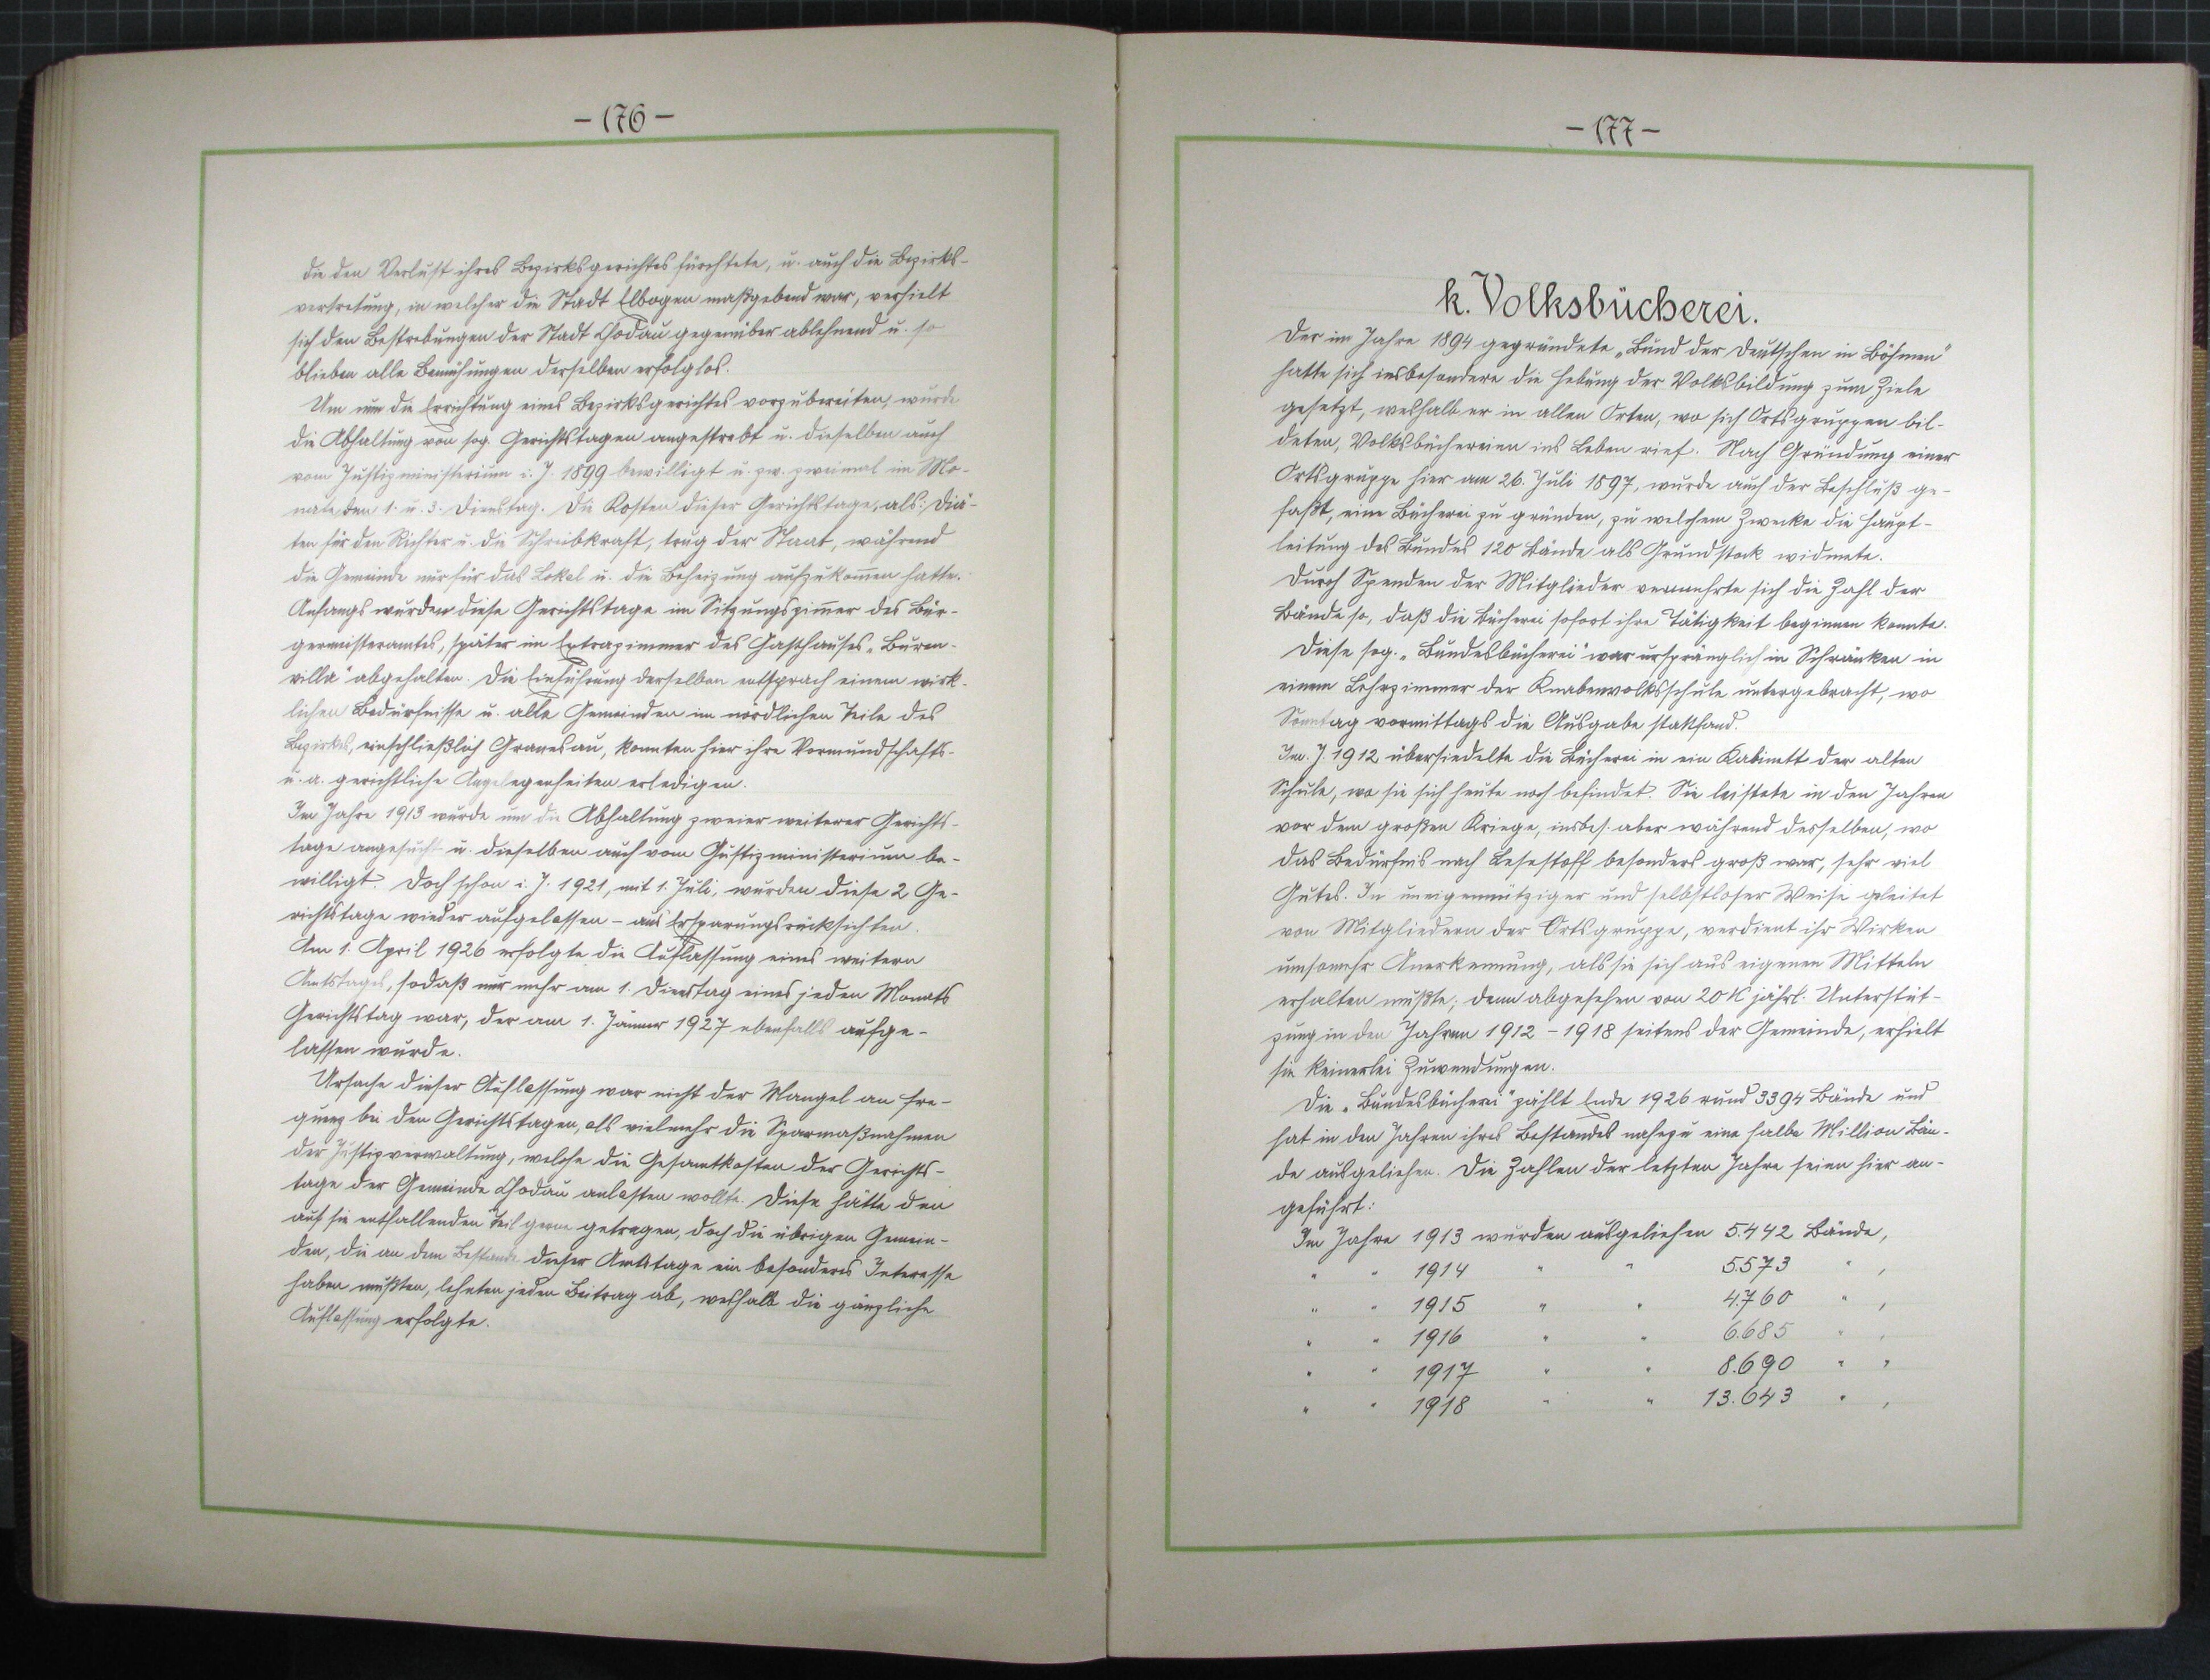 - 176 -
die den Verlust ihres Bezirksgerichtes fürchtete, u. auch die Bezirks-
vertretung, in welcher die Stadt Elbogen maßgebend war, verhielt
sich den Bestrebungen der Stadt Chodau gegenüber ablehnend u. so
blieben alle Bemühungen derselben erfolglos.
Um nun die Errichtung eines Bezirksgerichtes vorzubereiten, wurde
die Abhaltung von sog. Gerichtstagen angestrebt u. dieselben auch
vom Justizministerium i. J. 1899 bewilligt u. zw. zweimal im Mo-
nate den 1. u. 3. Dienstag. Die Kosten dieser Gerichtstage, als: Diä-
ten für den Richter u. die Schreibkraft, trug der Staat, während
die Gemeinde nur für das Lokal u. die Beheizung aufzukom̄en hatte.
Anfangs wurden diese Gerichtstage im Sitzungszim̄er des Bür-
germeisteramtes, später im Extrazimmer des Gasthauses „Buren-
villa" abgehalten. Die Einführung derselben entsprach einem wirk-
lichen Bedürfnisse u. alle Gemeinden im nördlichen Teile des
Bezirkes, einschließlich Granesau, konnten hier ihre Vormundschafts-
u. a. gerichtliche Angelegenheiten erledigen.
Im Jahre 1913 wurde um die Abhaltung zweier weiterer Gerichts-
tage angesucht u. dieselben auch vom Justizministerium be-
willigt. Doch schon i. J. 1921, mit 1. Juli, wurden diese 2 Ge-
richtstage wieder aufgelassen - aus Ersparungsrücksichten.
Am 1. April 1926 erfolgte die Auflassung eines weitern
Amtstages, sodaß nur mehr am 1. Dienstag eines jeden Monats
Gerichtstag war, der am 1. Jänner 1927 ebenfalls aufge-
lassen wurde.
Ursache dieser Auflassung war nicht der Mangel an Fre-
quenz bei den Gerichtstagen, als vielmehr die Sparmaßnahmen
der Justizverwaltung, welche die Gesamtkosten der Gerichts-
tage der Gemeinde Chodau anlasten wollte. Diese hätte den
auf sie entfallenden Teil gerne getragen, doch die übrigen Gemein-
den, die an dem Bestande dieser Amtstage ein besonderes Interesse
haben mußten, lehnten jeden Beitrag ab, weshalb die gänzliche
Auflassung erfolgte.
- 177 -
k. Volksbücherei.
Der im Jahre 1894 gegründete „Bund der Deutschen in Böhmen"
hatte sich insbesondere die Hebung der Volksbildung zum Ziele
gesetzt, weshalb er in allen Orten, wo sich Ortsgruppen bil-
deten, Volksbüchereien ins Leben rief. Nach Gründung einer
Ortsgruppe hier am 26. Juli 1897, wurde auch der Beschluß ge-
faßt, eine Bücherei zu gründen, zu welchem Zwecke die Haupt-
leitung des Bundes 120 Bände als Grundstock widmete.
Durch Spenden der Mitglieder vermehrte sich die Zahl der
Bände so, daß die Bücherei sofort ihre Tätigkeit beginnen konnte.
Diese sog. „Bundesbücherei" war ursprünglich in Schränken in
einem Lehrzimmer der Knabenvolksschule untergebracht, wo
Sonntag vormittags die Ausgabe stattfand.
Im J. 1912 übersiedelte die Bücherei in ein Kabinett der alten
Schule, wo sie sich heute noch befindet. Sie leistete in den Jahren
vor dem großen Kriege, insbes. aber während desselben, wo
das Bedürfnis nach Lesestoff besonders groß war, sehr viel
Gutes. In uneigennütziger und selbstloser Weise geleitet
von Mitgliedern der Ortsgruppe, verdient ihr Wirken
umsomehr Anerkennung, als sie sich aus eigenen Mitteln
erhalten mußte; denn abgesehen von 20 K jährl. Unterstüt-
zung in den Jahren 1912 - 1918 seitens der Gemeinde, erhielt
sie keinerlei Zuwendungen.
Die „Bundesbücherei" zählt Ende 1926 rund 3394 Bände und
hat in den Jahren ihres Bestandes nahezu eine halbe Million Bän-
de ausgeliehen. Die Zahlen der letzten Jahre seien hier an-
geführt:
Im Jahre 1913 wurden ausgeliehen 5.442 Bände,
" " 1914 " " 5.573 " ,
" " 1915 " " 4.760 " ,
" " 1916 " " 6.685 " ,
" " 1917 " " 8.690 " ,
" " 1918 " " 13.643 " ,